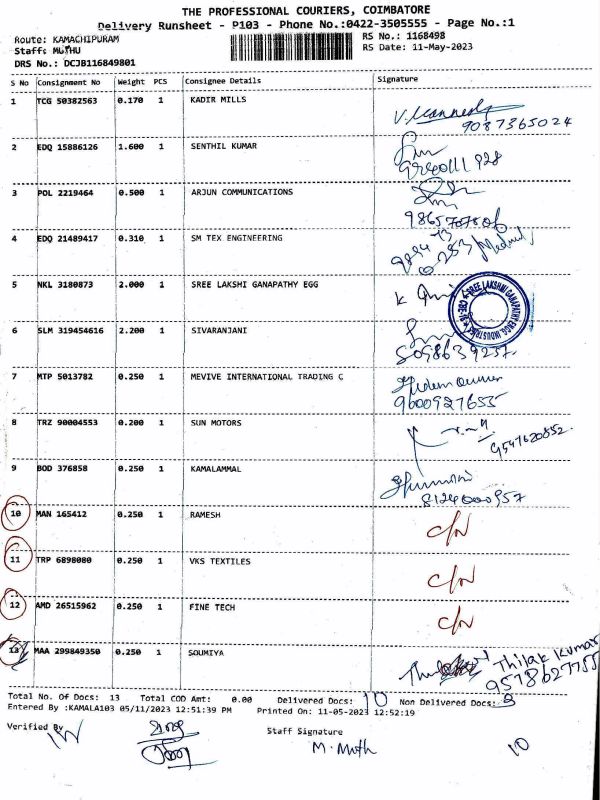 THE PROFESSIONAL COURIERS, COIMBATORE
Delivery Runsheet - P103 - Phone No.:0422-3505555 - Page No.:1
Route: KAMACHIPURAM RS No.: 1168498
Staff: MUTHU RS Date: 11-May-2023
DRS No.: DCJB116849801
S No Consignment No Weight PCS Consignee Details Signature
1 TCG 50382563 0.170 1 KADIR MILLS
9087365024
2 EDQ 15886126 1.600 1 SENTHIL KUMAR
3 POL 2219464 0.500 1 ARJUN COMMUNICATIONS
4 EDQ 21489417 0.310 1 SM TEX ENGINEERING
5 NKL 3180873 2.000 1 SREE LAKSHI GANAPATHY EGG
SREE LAKSHMI GANAPATHY ENGG. INDUSTRIES
6 SLM 319454616 2.200 1 SIVARANJANI
7 MTP 5013782 0.250 1 MEVIVE INTERNATIONAL TRADING C
9600927655
8 TRZ 90004553 0.200 1 SUN MOTORS
9547620852
9 BOD 376858 0.250 1 KAMALAMMAL
8124000957
10 MAN 165412 0.250 1 RAMESH C/N
11 TRP 6898080 0.250 1 VKS TEXTILES C/N
12 AMD 26515962 0.250 1 FINE TECH C/N
13 MAA 299849350 0.250 1 SOUMIYA
Thilak Kumar
9578627755
Total No. Of Docs: 13 Total COD Amt: 0.00 Delivered Docs: 10 Non Delivered Docs:
Entered By :KAMALA103 05/11/2023 12:51:39 PM Printed On: 11-05-2023 12:52:19
Verified By
Staff Signature
M. Muth
10